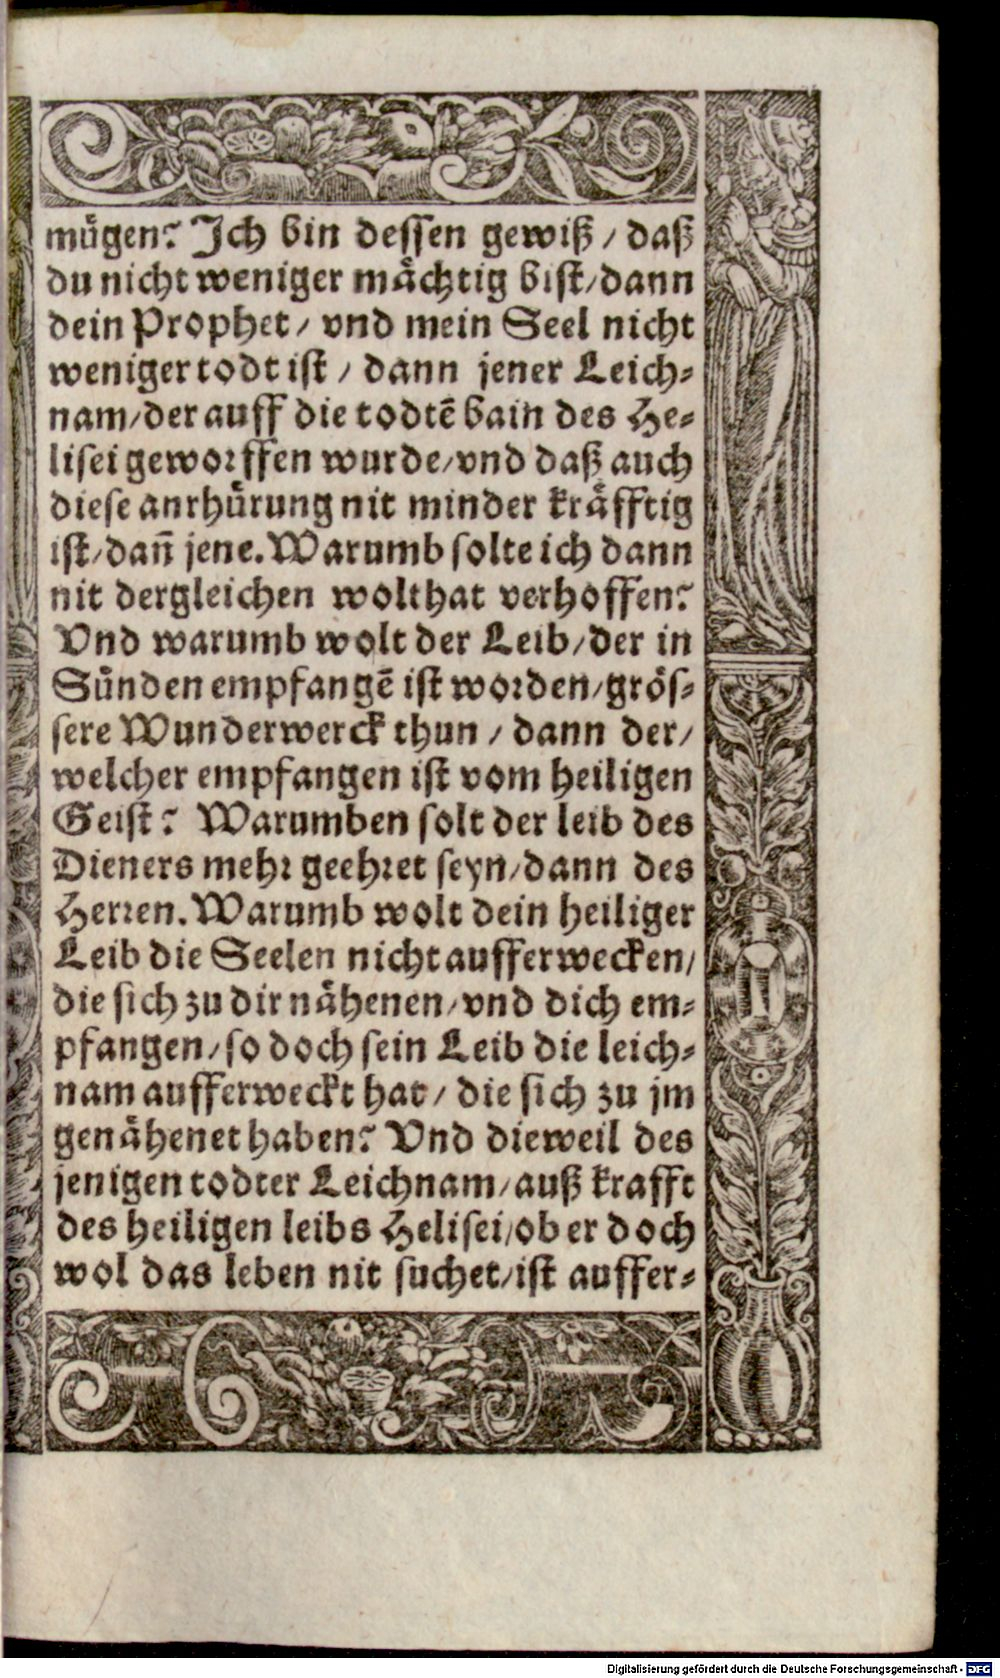 mügen? Ich bin dessen gewiß / daß
du nicht weniger mächtig bist/dann
dein Prophet/ vnd mein Seel nicht
weniger todt ist / dann jener Leich-
nam/der auff die todtẽ bain des He-
lisei geworffen wurde/vnd daß auch
diese anrhürung nit minder kräfftig
ist/dañ jene. Warumb solte ich dann
nit dergleichen wolthat verhoffen?
Vnd warumb wolt der Leib/der in
Sünden empfangẽ ist worden/grös-
sere Wunderwerck thun / dann der/
welcher empfangen ist vom heiligen
Geist? Warumben solt der leib des
Dieners mehr geehret seyn/dann des
Herren. Warumb wolt dein heiliger
Leib die Seelen nicht aufferwecken/
die sich zu dir nähenen/vnd dich em-
pfangen/so doch sein Leib die leich-
nam aufferweckt hat/ die sich zu jm
genähenet haben? Vnd dieweil des
jenigen todter Leichnam/auß krafft
des heiligen leibs Helisei/ob er doch
wol das leben nit suchet/ist auffer-
Digitalisierung gefördert durch die Deutsche Forschungsgemeinschaft - DFG